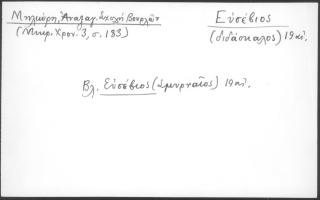 Μηλιώρη, Ἀναλαγ. Σχολὴ Βουρλῶν
(Μικρ. Χρον. 3, σ. 183)
Εὐσέβιος
(διδάσκαλος) 19 αἰ.
Βλ. Εὐσέβιος (Σμυρναῖος) 19 αἰ.